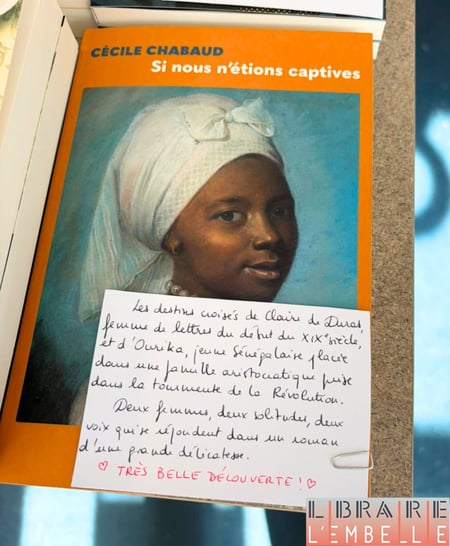 CÉCILE CHABAUD
Si nous n'étions captives
Les destins croisés de Claire de Duras,
femme de lettres du début du XIXe siècle,
et d'Ourika, jeune Sénégalaise placée
dans une famille aristocratique prise
dans la tourmente de la Révolution.
Deux femmes, deux solitudes, deux
voix qui se répondent dans un roman
d'une grande délicatesse.
♡ TRÈS BELLE DÉCOUVERTE ! ♡
LBRARE
L'EMBELLE